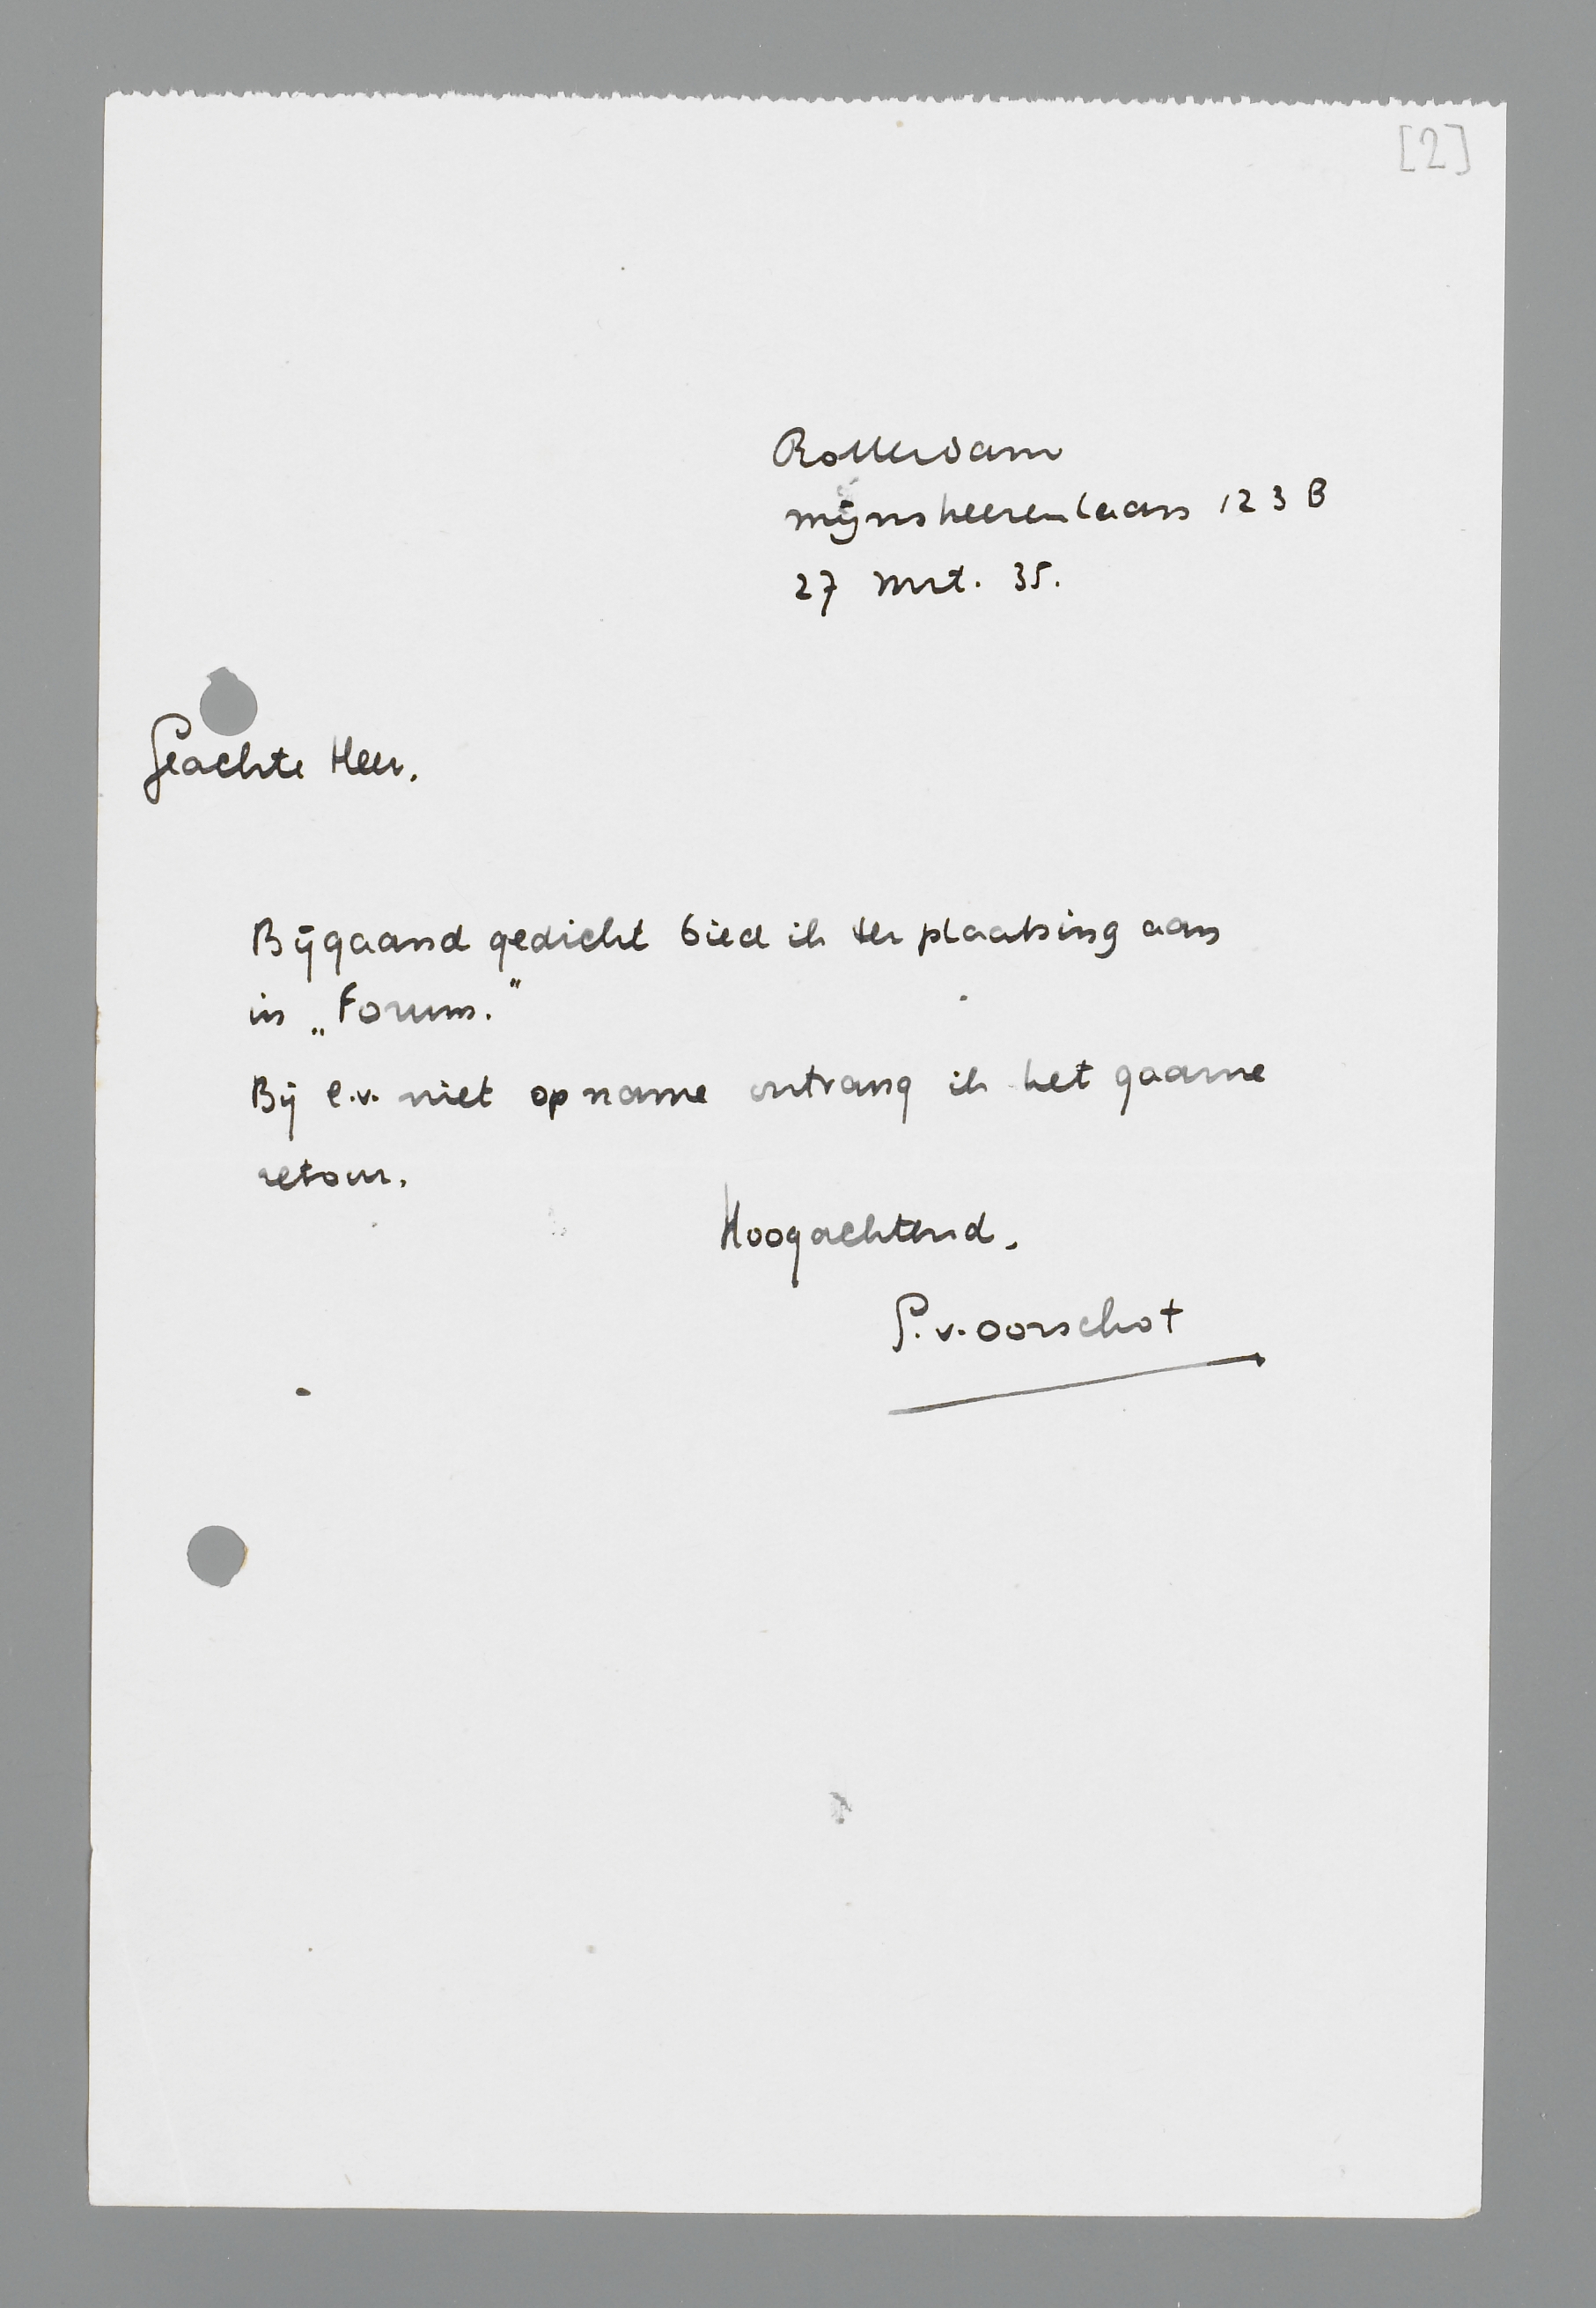 [2]
Rotterdam
mijnsheerenlaan 123 B
27 mrt. 35.
Geachte Heer.
Bijgaand gedicht bied ik ter plaatsing aan
in „Forum."
Bij e.v. niet opname ontvang ik het gaarne
retour.
Hoogachtend.
G. v. oorschot